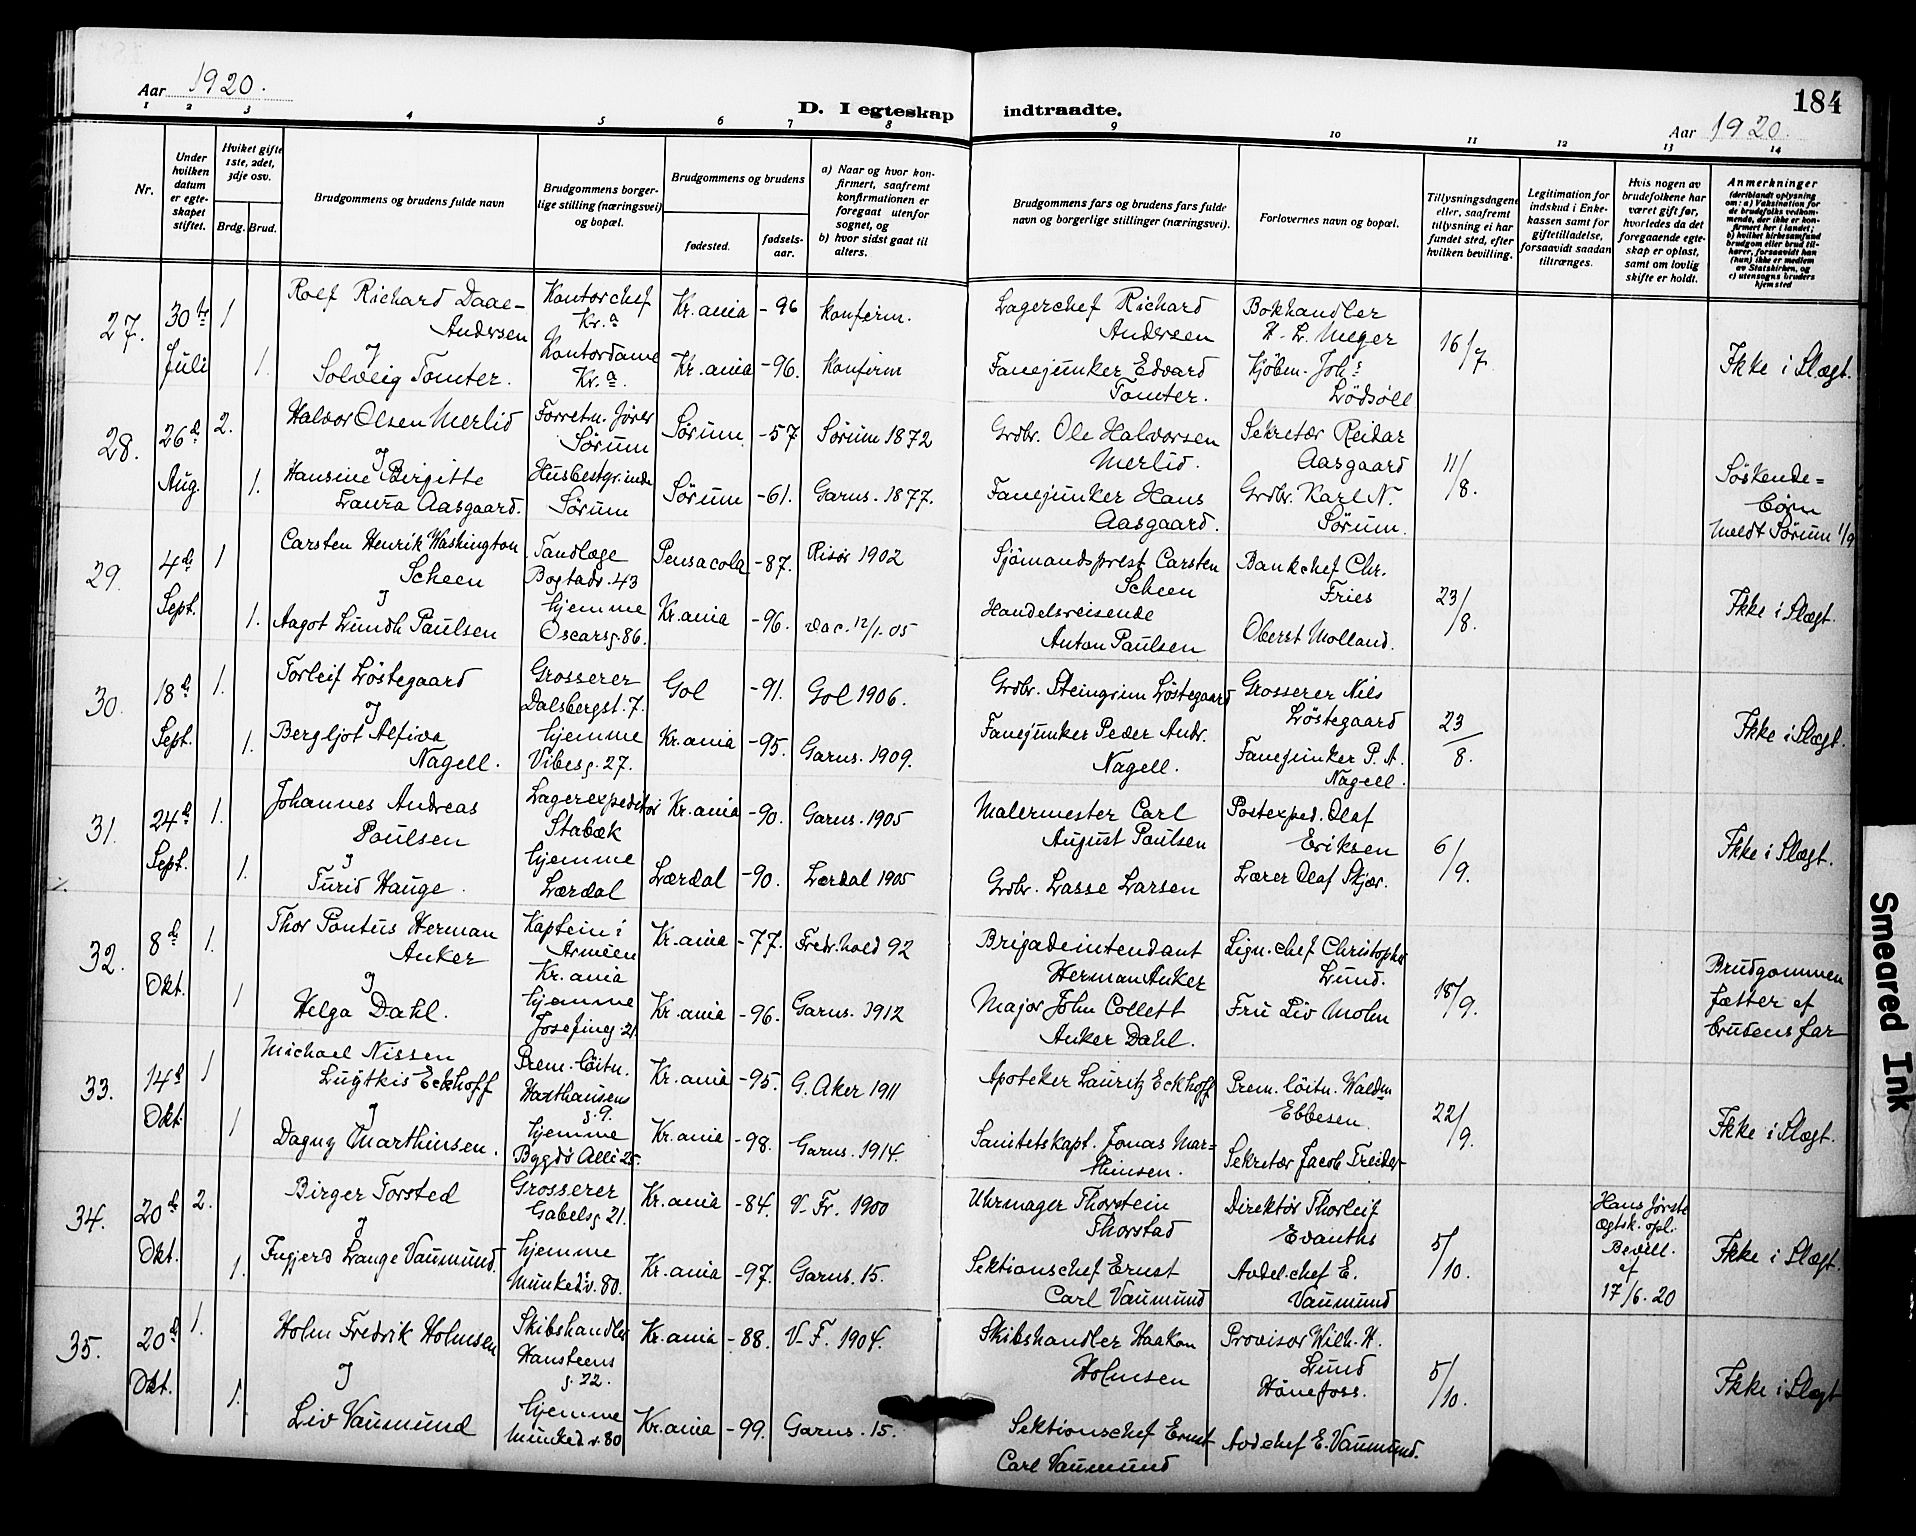 Aar 1920.
D. I egteskap indtraadte.
184
Aar 1920.
1 2 3 4 5 6 7 8 9 10 11 12 13 14
Nr.
Under hvilken datum er egteskapet stiftet.
Hviket gifte 1ste, 2det, 3dje osv.
Brdg. Brud.
Brudgommens og brudens fulde navn
Brudgommens borgerlige stilling (næringsvei) og bopæl.
Brudgommens og brudens
fødested.
fødselsaar.
a) Naar og hvor konfirmert, saafremt konfirmationen er foregaat utenfor sognet, og
b) hvor sidst gaat til alters.
Brudgommens fars og brudens fars fulde navn og borgerlige stillinger (næringsvei).
Forlovernes navn og bopæl.
Tillysningsdagene eller, saafremt tillysning ei har fundet sted, efter hvilken bevilling.
Legitimation for indskud i Enkekassen samt for giftetilladelse, forsaavidt saadan tiltrænges.
Hvis nogen av brudefolkene har været gift før, hvorledes da det foregaaende egteskap er opløst, samt om lovlig skifte er holdt.
Anmerkninger
(deriblandt oplysning om: a) Vaksination for de brudefolks vedkommende, der ikke er konfirmert her i landet; b) hvilket kirkesamfund brudgom eller brud tilhører, forsaavidt han (hun) ikke er medlem av Statskirken, og c) utensogns bruders hjemsted
27. 30te Juli 1 1.
Rolf Richard Daae-Andersen
Kontorchef Kr.a
Kr.ania -96 Konfirm.
Lagerchef Richard Andersen
Bokhandler H. L. Meyer
16/7
Ikke i Slægt.
Solveig Tomter.
Kontordame Kr.a.
Kr.ania -96. Konfirm
Fanejunker Edvard Tomter.
Kjøbm. Johs Lödsöll
28. 26d Aug. 2. 1.
Halvor Olsen Merlid
Forretn. fører Sørum
Sørum -57 Sørum 1872
Grdbr. Ole Halvorsen Merlid.
Sekretær Reidar Aasgaard
11/8.
Söskende=börn
Meldt Sørum 1/9
Hansine Birgitte Laura Aasgaard.
Husbestyrinde Sørum
Sørum -61. Garns. 1877.
Fanejunker Hans Aasgaard.
Grdbr. Karl N. Sörum.
29. 4de Sept. 1 1.
Carsten Henrik Washington Scheen
Tandlæge Bogstadv. 43
Pensacola -87. Risör 1902
Sjömandsprest Carsten Scheen
Bankchef Chr. Fries
23/8.
Ikke i Slægt.
Aagot Lundh Paulsen
hjemme Oscarsg. 86.
Kr.ania -96. vac. 12/1.05
Handelsreisende Anton Paulsen
Oberst Molland.
30. 18d Sept. 1. 1.
Torleif Löstegaard
Grosserer Dalsbergst. 7.
Gol -91. Gol 1906.
Grdbr. Steingrim Löstegaard
Grosserer Nils Löstegaard
23/8.
Ikke i Slægt.
Bergljot Alfiva Nagell.
hjemme Vibesg. 27.
Kr.ania -95. Garns. 1909.
Fanejunker Peder Andr. Nagell.
Fanejunker P. A. Nagell.
31. 24d Sept. 1. 1.
Johannes Andreas Paulsen
Lagerexpeditör Stabæk
Kr.ania -90. Garns. 1905
Malermester Carl August Paulsen
Postexped. Olaf Eriksen
6/9.
Ikke i Slægt.
Turid Hauge.
hjemme Lærdal
Lærdal -90. Lærdal 1905
Grdbr. Lasse Larsen
Lærer Olaf Skjær.
32. 8de Okt. 1. 1
Thor Pontus Herman Anker
Kaptein i Armeen Kr.ania
Kr.ania -77. Fredr.hald 92
Brigadeintendant Herman Anker
Lign.chef Christopher Lund.
18/9.
Brudgommen fætter af brudens far
Helga Dahl.
hjemme Josefineg 21
Kr.ania -96. Garns. 1912
Major John Collett Anker Dahl.
Fru Liv Mohn
33. 14d Okt. 1 1
Michael Nissen Luytkis Eckhoff
Prem. löitn. Haxthausens g. 9.
Kr.ania -95. G. Aker 1911
Apoteker Lauritz Eckhoff
Prem. löitn. Waldm Ebbesen.
22/9.
Ikke i Slægt.
Dagny Marthinsen.
hjemme Bygdö Allé 25.
Kr.ania -98. Garns. 1914.
Sanitetskapt. Jonas Mar=thinsen.
Sekretær Jacob Treider
34. 20d Okt. 2. 1.
Birger Torsted
Grosserer Gabelsg 21.
Kr.ania -84. V. Fr. 1900
Uhrmager Thorstein Thorstad
Direktör Thorleif Evanths
5/10.
Hans förste ægtsk. opl. Bevill. af 17/6.20
Ikke i Slægt.
Ingjerd Lange Vaumund.
hjemme Munked.v. 80.
Kr.ania -97. Garns. 15.
Sektionschef Ernst Carl Vaumund
Avdel.chef E. Vaumund
35. 20d Okt. 1. 1.
Holm Fredrik Holmsen
Skibshandler Hansteens g. 22.
Kr.ania -88. V. F. 1904.
Skibshandler Haakon Holmsen
Provisor Wilh. H. Lund Hönefoss.
5/10.
Ikke i Slægt
Liv Vaumund
hjemme Munked.v. 80
Kr.ania -99. Garns. 15.
Sektionschef Ernst Carl Vaumund
Avdchef E. Vaumund.
Smeared Ink